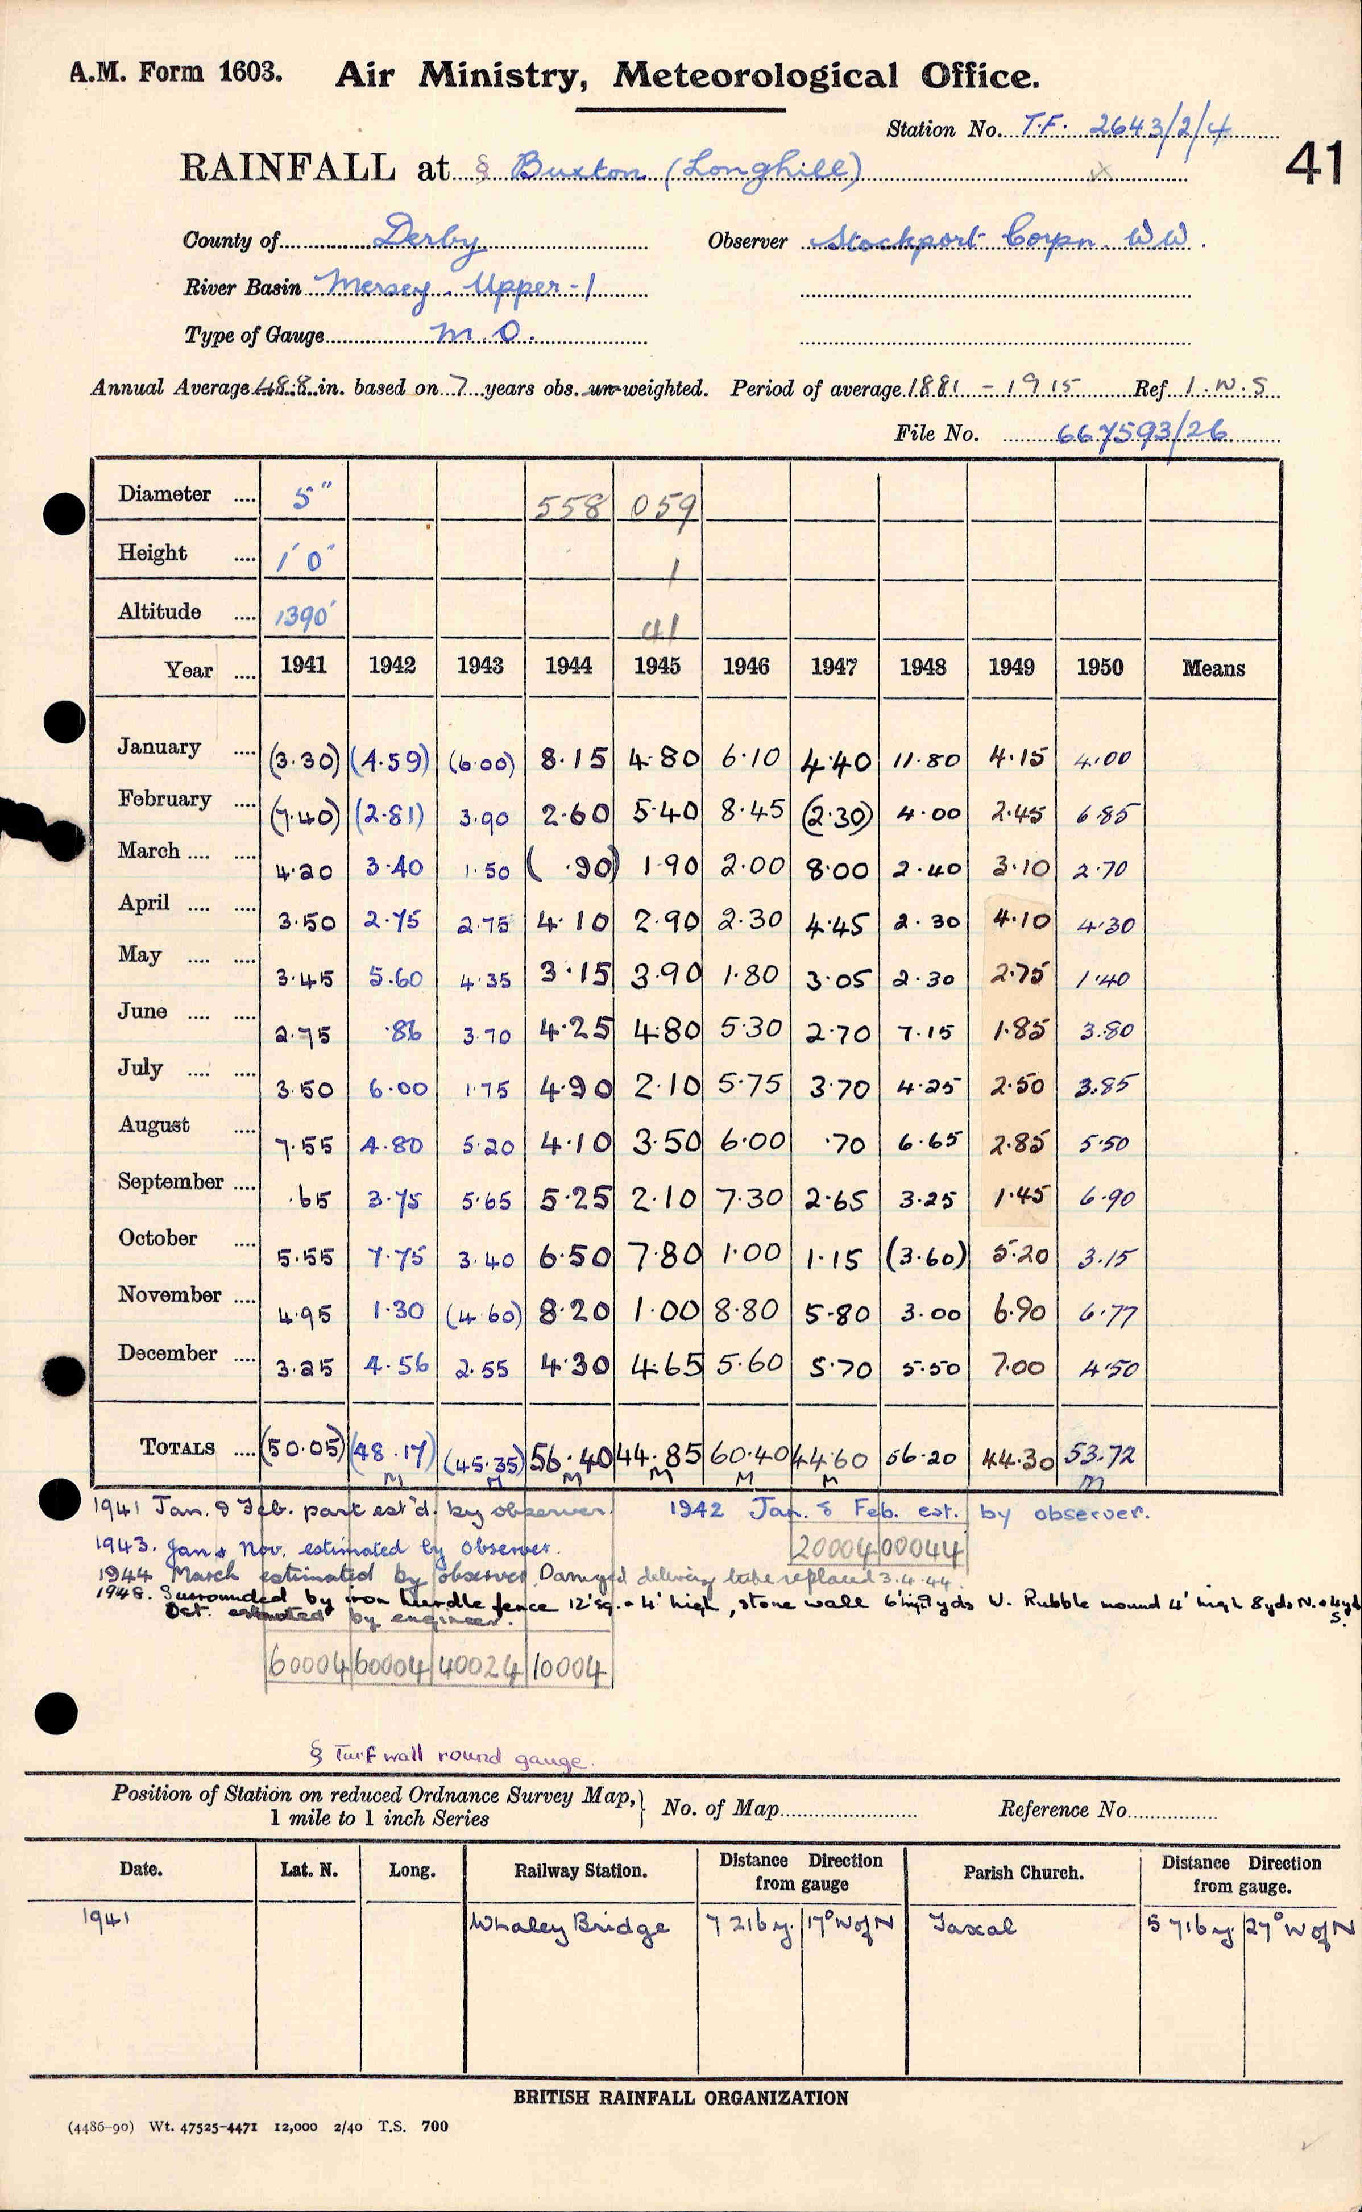 A.M. Form 1603. Air Ministry, Meteorological Office.
Station No. T.F. 2643/2/4
RAINFALL at § Buxton (Longhill) x
41
County of Derby Observer Stockport Corpn. WW.
River Basin Mersey. Upper-1
Type of Gauge M.O.
Annual Average 48.8 in. based on 7 years obs. un-weighted. Period of average 1881 - 1915 Ref I.W.S
File No. 667593/26
Diameter .... 5" 558 059
Height .... 1'0" 1
Altitude .... 1390' 41
Year .... 1941 1942 1943 1944 1945 1946 1947 1948 1949 1950 Means
January .... (3.30) (4.59) (6.00) 8.15 4.80 6.10 4.40 11.80 4.15 4.00
February .... (7.40) (2.81) 3.90 2.60 5.40 8.45 (2.30) 4.00 2.45 6.85
March .... .... 4.20 3.40 1.50 ( .90) 1.90 2.00 8.00 2.40 3.10 2.70
April .... .... 3.50 2.75 2.75 4.10 2.90 2.30 4.45 2.30 4.10 4.30
May .... .... 3.45 5.60 4.35 3.15 3.90 1.80 3.05 2.30 2.75 1.40
June .... .... 2.75 .86 3.70 4.25 4.80 5.30 2.70 7.15 1.85 3.80
July .... .... 3.50 6.00 1.75 4.90 2.10 5.75 3.70 4.25 2.50 3.85
August .... 7.55 4.80 5.20 4.10 3.50 6.00 .70 6.65 2.85 5.50
September .... .65 3.75 5.65 5.25 2.10 7.30 2.65 3.25 1.45 6.90
October .... 5.55 7.75 3.40 6.50 7.80 1.00 1.15 (3.60) 5.20 3.15
November .... 4.95 1.30 (4.60) 8.20 1.00 8.80 5.80 3.00 6.90 6.77
December .... 3.25 4.56 2.55 4.30 4.65 5.60 5.70 5.50 7.00 4.50
TOTALS .... (50.05) (48.17) (45.35) 56.40 44.85 60.40 44.60 56.20 44.30 53.72
M M M M M M M
1941 Jan. & Feb. part est'd. by observer. 1942 Jan. & Feb. est. by observer.
1943. Jan & Nov. estimated by observer. 20004 00044
1944 March estimated by observer. Damaged delivery tube replaced 3.4.44.
1948. Surrounded by iron hurdle fence 12' sq. + 4' high, stone wall 6' high 9 yds W. Rubble mound 4' high 8yds N. + 4yds S.
Oct. estimated by engineer.
60004 60004 40024 10004
§ Turf wall round gauge.
Position of Station on reduced Ordnance Survey Map, } No. of Map Reference No.
1 mile to 1 inch Series
Date. Lat. N. Long. Railway Station. Distance Direction from gauge Parish Church. Distance Direction from gauge.
1941 Whaley Bridge 7216y. 17° W of N Taxal 5716y. 27° W of N
BRITISH RAINFALL ORGANIZATION
(4486-90) Wt. 47525-4471 12,000 2/40 T.S. 700